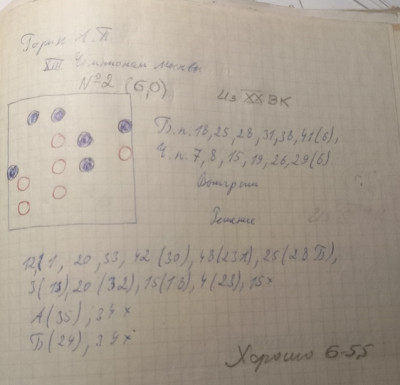 Горин А.Б
XIII Чемпионат москвы
№2 (6,0)
Из XX ВК
Б.п. 18, 25, 28, 31, 38, 41(6),
Ч.п. 7, 8, 15, 19, 26, 29(6)
Выигрыш
Решение
1, 20, 33, 42 (30), 48(23А), 25(28Б),
3(13), 20(32), 15(13), 4(23), 15×
А(35), 34×
Б(24), 34×
Хорошо 6-5,5